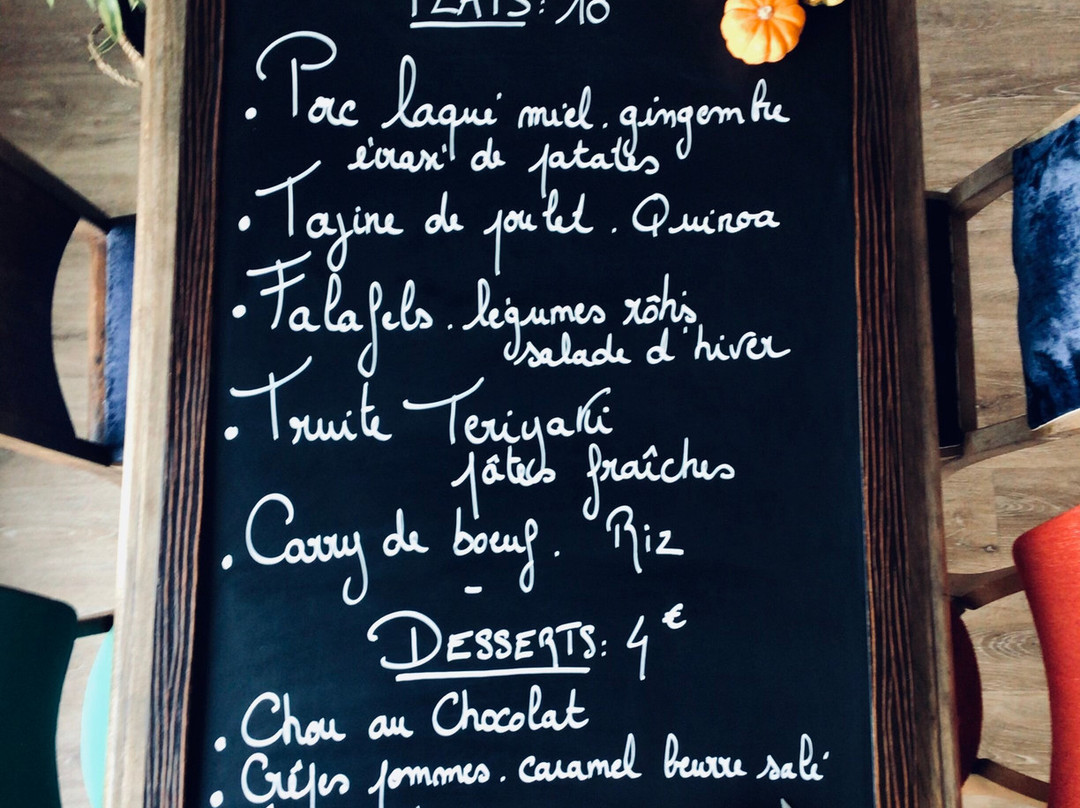 PLATS: 10
• Porc laqué miel. gingembre
écrasé de patates
• Tajine de poulet. Quinoa
• Falafels. légumes rôtis
salade d'hiver
• Truite Teriyaki
pâtes fraîches
• Carry de boeuf. Riz
-
DESSERTS: 4€
• Chou au Chocolat
• Crêpes pommes. caramel beurre salé